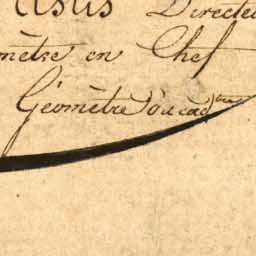 Directe
mètre en Chef
Géomètre du cad.tre